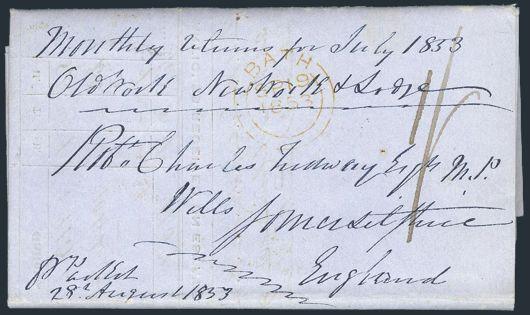 Monthly returns for July 1853
Old Work New Work & Lodge
BATH
1853
Robt Charles Tudway Esqr M.P
Wells Somersetshire
England
pr Packet
28th August 1853
1/